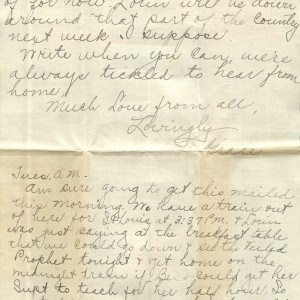 of for now Lorin will be down
around that part of the country
next week I suppose.
Write when you can, we're
always tickled to hear from
home.
Much Love from all,
Lovingly
Grace
Tues. A.M.
Am sure going to get this mailed
this morning. We have a train out
of here for St Louis at 3:37 P.M. & Lorin
was just saying at the breakfast table
that we could go down & see the Veiled
Prophet tonight & get home on the
midnight train if Bess could get her
Supt to teach for her half hour. So